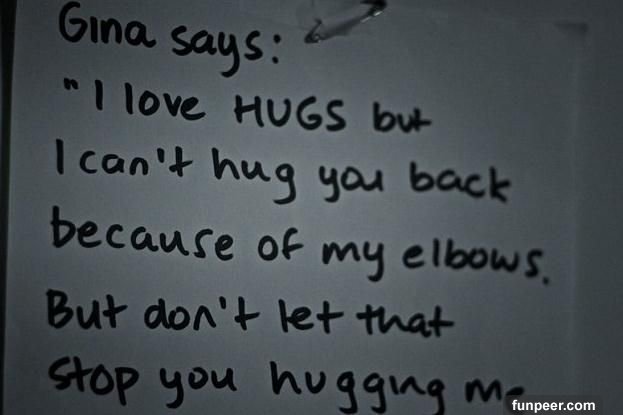 Gina says:
"I love HUGS but
I can't hug you back
because of my elbows.
But don't let that
stop you hugging me
funpeer.com